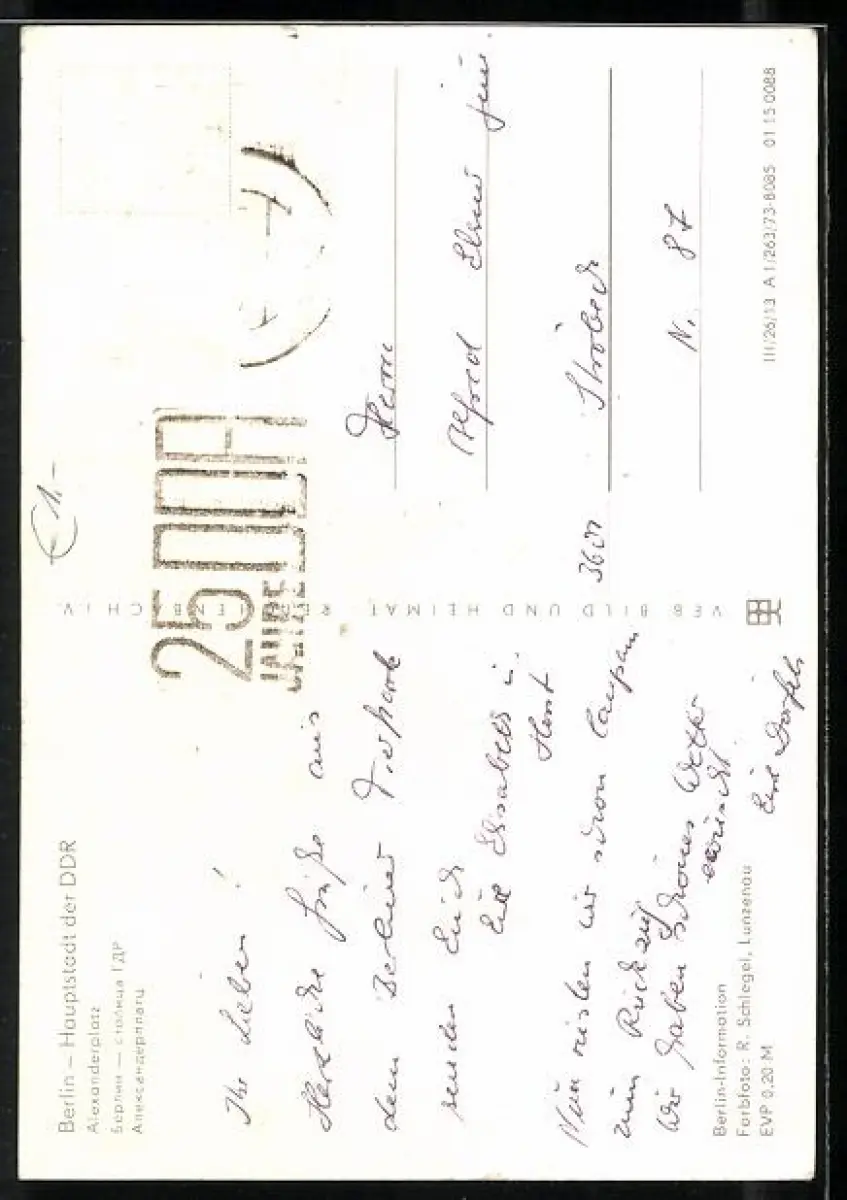 Berlin – Hauptstadt der DDR
Alexanderplatz
Берлин — столица ГДР
Александерплатц
€ 1.-
25
JAHRE
DDR
Ihr Lieben!
Herzliche Grüße aus
dem Berliner
senden Euch
Elisabeth u.
Horst
Nun rüsten wir schon langsam
zum Rückzug
Wir haben schönes Wetter
erwischt
Berlin-Information
Farbfoto: R. Schlegel, Lunzenau
EVP 0,20 M
VEB BILD UND HEIMAT REICHENBACH I. V.
Herrn
Alfred Elsner jun.
3601 Ströbeck
N. 87
III/26/13 A 1/263/73-8085 01 15 0088